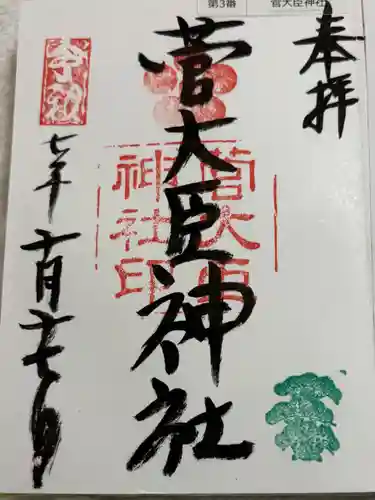 第3番
菅大臣神社
奉拝
菅大臣神社
菅大臣
神社印
令和
七年十一月十七日